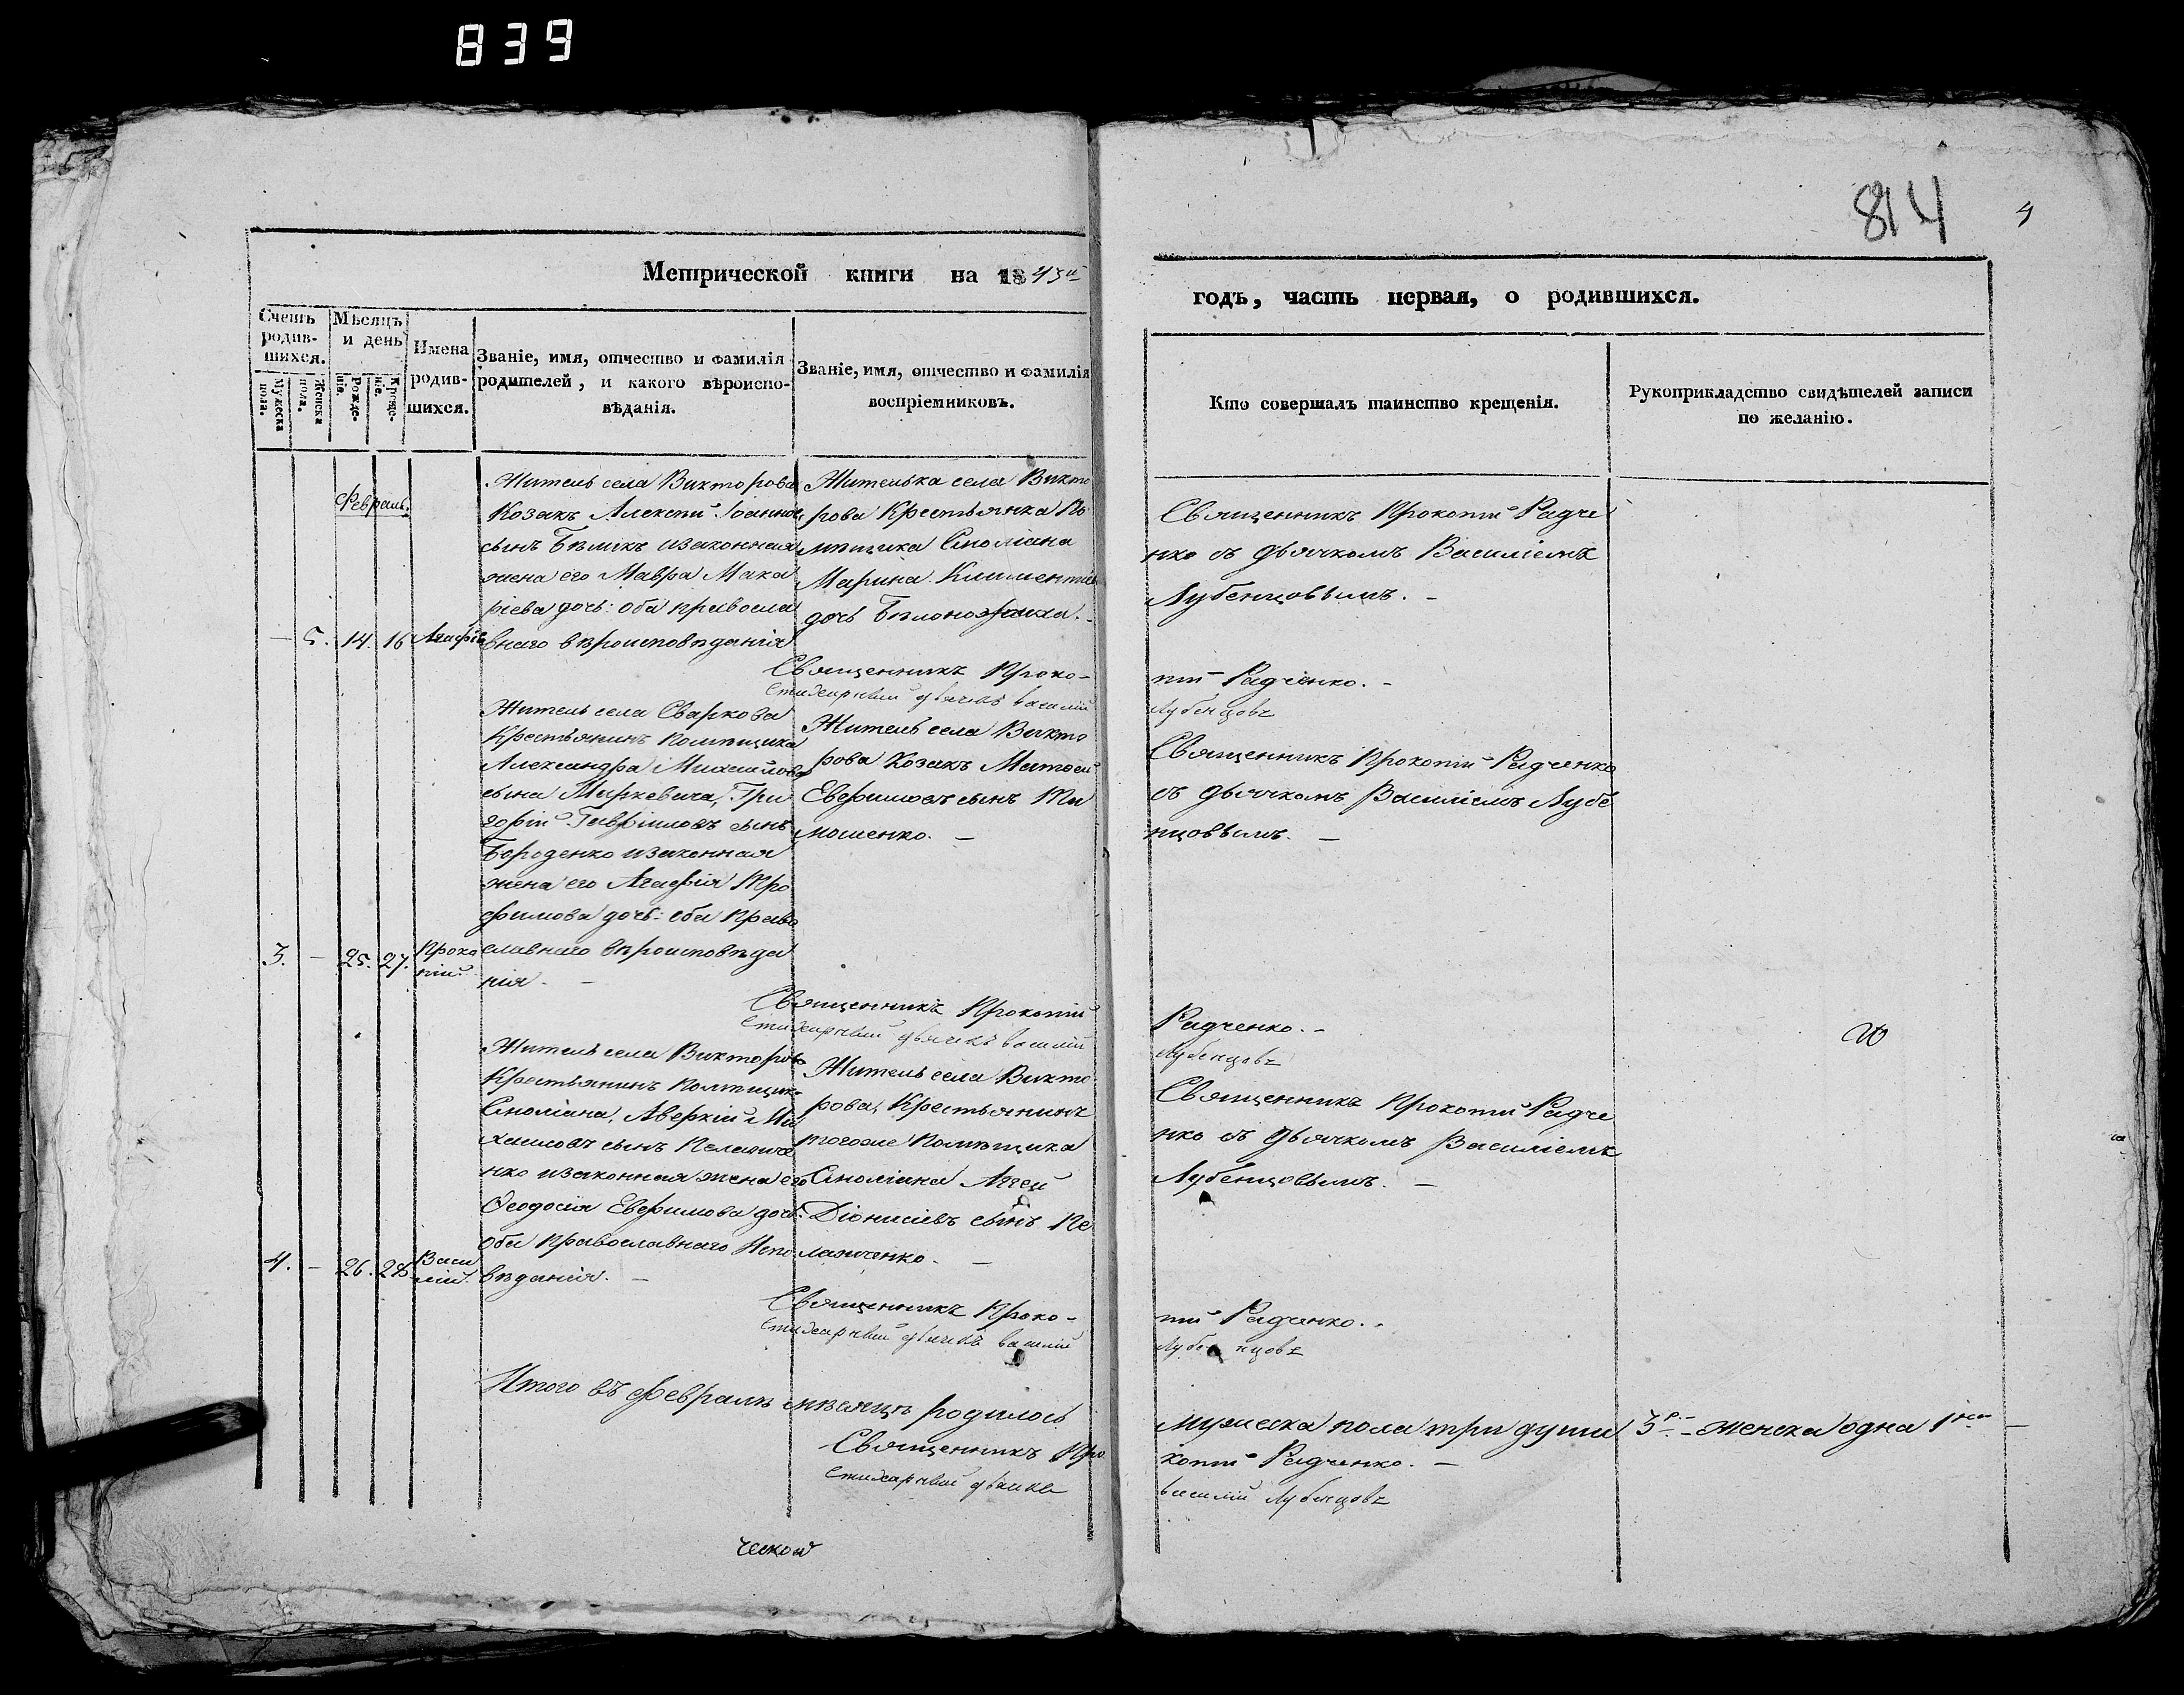 839
814
4
Метрической книги на 1843й
годъ, часть первая, о родившихся.
Счетъ родив-
шихся.
Мужеска пола.
Женска пола.
Мѣсяцъ и день
Рожде-
нія.
Креще-
нія.
Имена
родив-
шихся.
Званіе, имя, отчество и фамилія
родителей, и какого вѣроиспо-
вѣданія.
Званіе, имя, отчество и фамилія
воспріемниковъ.
Кто совершалъ таинство крещенія.
Рукоприкладство свидѣтелей записи
по желанію.
Февраль.
— 5. 14. 16 Агафія
Житель села Викторова
Козакъ Алексій Іоанновъ
сынъ Бѣликъ изаконная
жена его Мавра Мака
ріева дочь: оба правосла
внаго вѣроисповѣданія
Жителька села Викто
рова Крестьянка По
мѣщика Стоміана
Марина Климентіева
дочь Бѣлоножка. -
Священникъ Прокопій Радче
нко съ дьячкомъ Василіемъ
Лубенцовымъ. -
Священникъ Проко-
пій Радченко. -
Стихарный дьячекъ василій
Лубенцовъ
3. — 25. 27. Проко
пій.
Житель села Сваркова
Крестьянинъ Помѣщика
Александра Михайлова
сына Маркевича, Гри
горій Гавріиловъ сынъ
Бороденко изаконная
жена его Агафія Тро
фимова дочь: оба Право
славнаго вѣроисповѣда
нія. -
Житель села Викто
рова Козакъ Матвей
Евфимовъ сынъ Ти
мошенко. —
Священникъ Прокопій Радченко
съ дьячкомъ Василіемъ Лубе
нцовымъ. —
Священникъ Прокопій
Радченко. -
Стихарный дьячекъ василій
Лубенцовъ
4. — 26. 28 Васи
лій.
Житель села Викторова
Крестьянинъ Помѣщика
Стоміана, Аверкій Ми
хаиловъ сынъ Пелипче
нко изаконная жена его
Феодосія Евфимова дочь:
Оба Православнаго Испо
вѣданія. —
Житель села Викто
рова, Крестьянинъ
тогоже Помѣщика
Стоміана Аггей
Діонисіевъ сынъ Пе
липченко. —
Священникъ Прокопій Радче
нко съ дьячкомъ Василіемъ
Лубенцовымъ. —
Священникъ Проко-
пій Радченко. -
Стихарный дьячекъ василій
Лубенцовъ
Итого въ февралѣ мѣсяцѣ родилось
мужеска пола три души 3 — женска одна 1 —
Священникъ Про
копій Радченко. —
Стихарный дьячекъ
василій Лубенцовъ
ческой